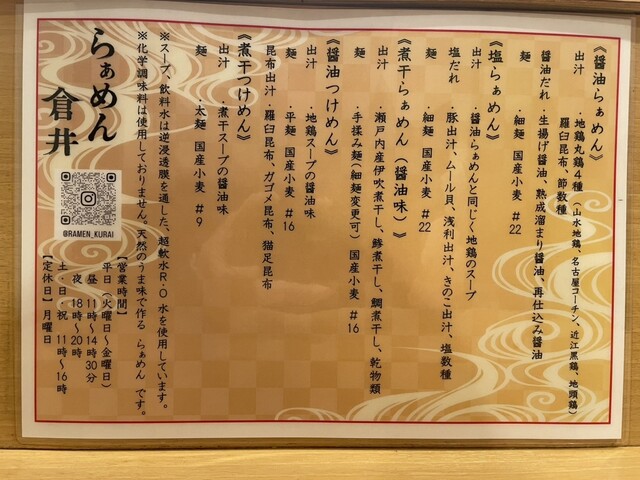 《醤油らぁめん》
出汁　・地鶏丸鶏４種（山水地鶏、名古屋コーチン、近江黒鶏、地頭鶏）
羅臼昆布、節数種
醤油だれ・生揚げ醤油、熟成溜まり醤油、再仕込み醤油
麺　・細麺　国産小麦　＃22
《塩らぁめん》
出汁　・醤油らぁめんと同じく地鶏のスープ
塩だれ　・豚出汁、ムール貝、浅利出汁、きのこ出汁、塩数種
麺　・細麺　国産小麦　＃22
《煮干らぁめん（醤油味）》
出汁　・瀬戸内産伊吹煮干し、鯵煮干し、鯛煮干し、乾物類
麺　・手揉み麺（細麺変更可）国産小麦　＃16
《醤油つけめん》
出汁　・地鶏スープの醤油味
麺　・平麺　国産小麦　＃16
昆布出汁　・羅臼昆布、ガゴメ昆布、猫足昆布
《煮干つけめん》
出汁　・煮干スープの醤油味
麺　・太麺　国産小麦　＃9
※スープ、飲料水は逆浸透膜を通した、超軟水R・O水を使用しています。
※化学調味料は使用しておりません。天然のうま味で作る　らぁめん　です。
らぁめん　倉井
@RAMEN_KURAI
【営業時間】
平日（火曜日〜金曜日）
昼　11時〜14時30分
夜　18時〜20時
土・日・祝　11時〜16時
【定休日】月曜日